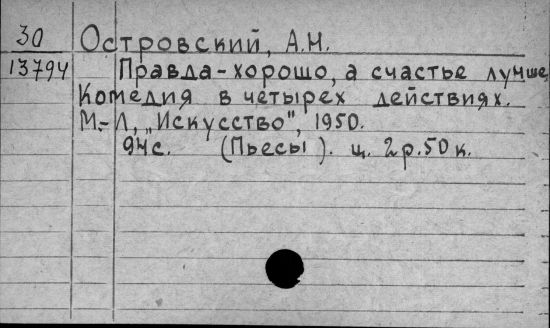 30 Островский, А.Н.
13794 Правда-хорошо, а счастье лучше,
Комедия в четырех действиях.
М.-Л, „Искусство", 1950.
94с. (Пьесы). ц. 2р.50к.